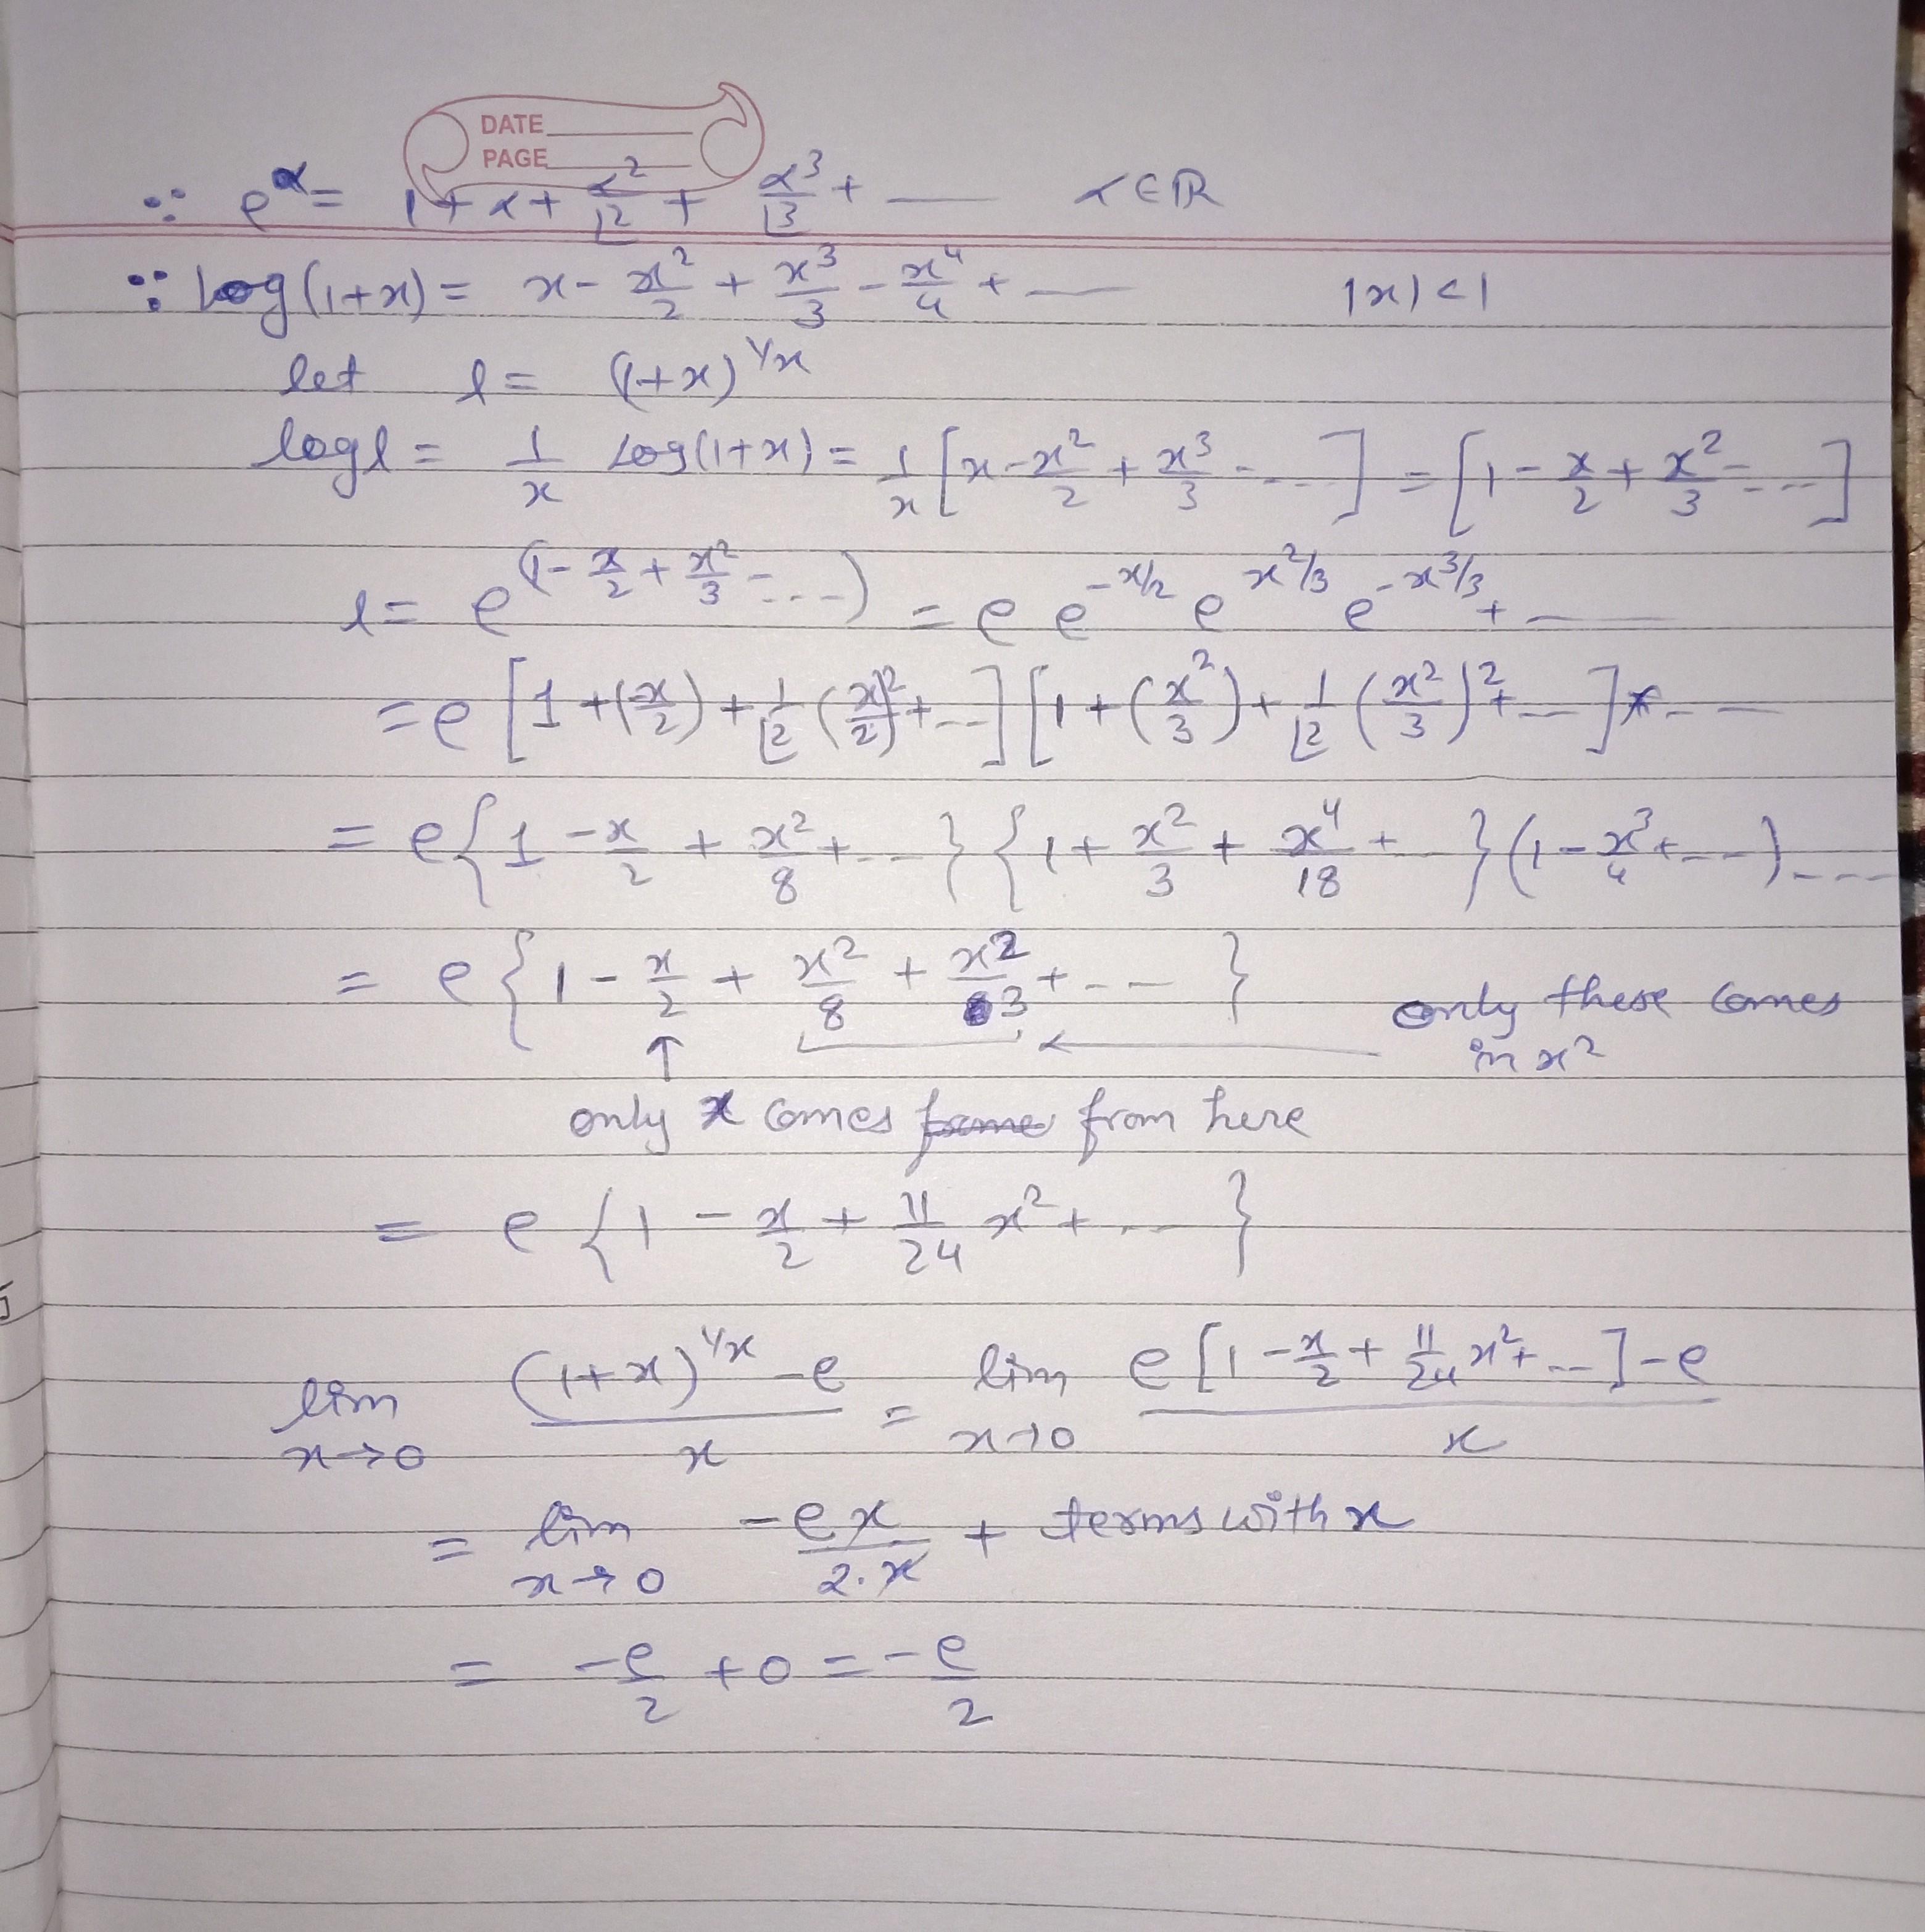 DATE
PAGE
∵ e^α = 1 + α + α²/⌊2 + α³/⌊3 + —— α ∈ ℝ
∵ log(1+x) = x - x²/2 + x³/3 - x⁴/4 + —— |x| < 1
let l = (1+x)^(1/x)
log l = 1/x log(1+x) = 1/x [x - x²/2 + x³/3 - ---] = [1 - x/2 + x²/3 - ---]
l = e^(1 - x/2 + x²/3 - ---) = e e^(-x/2) e^(x²/3) e^(-x³/3) + ——
= e [1 + (-x/2) + 1/⌊2 (x/2)² + ---] [1 + (x²/3) + 1/⌊2 (x²/3)² + ---] * ---
= e {1 - x/2 + x²/8 + ---} {1 + x²/3 + x⁴/18 + ---} (1 - x³/4 + ---) ---
= e {1 - x/2 + x²/8 + x²/3 + ---}
only these comes
in x²
↑ ←
only x comes from here
= e {1 - x/2 + 11/24 x² + ---}
lim x→0 ((1+x)^(1/x) - e)/x = lim x→0 (e [1 - x/2 + 11/24 x² + ---] - e)/x
= lim x→0 -ex/2.x + terms with x
= -e/2 + 0 = -e/2